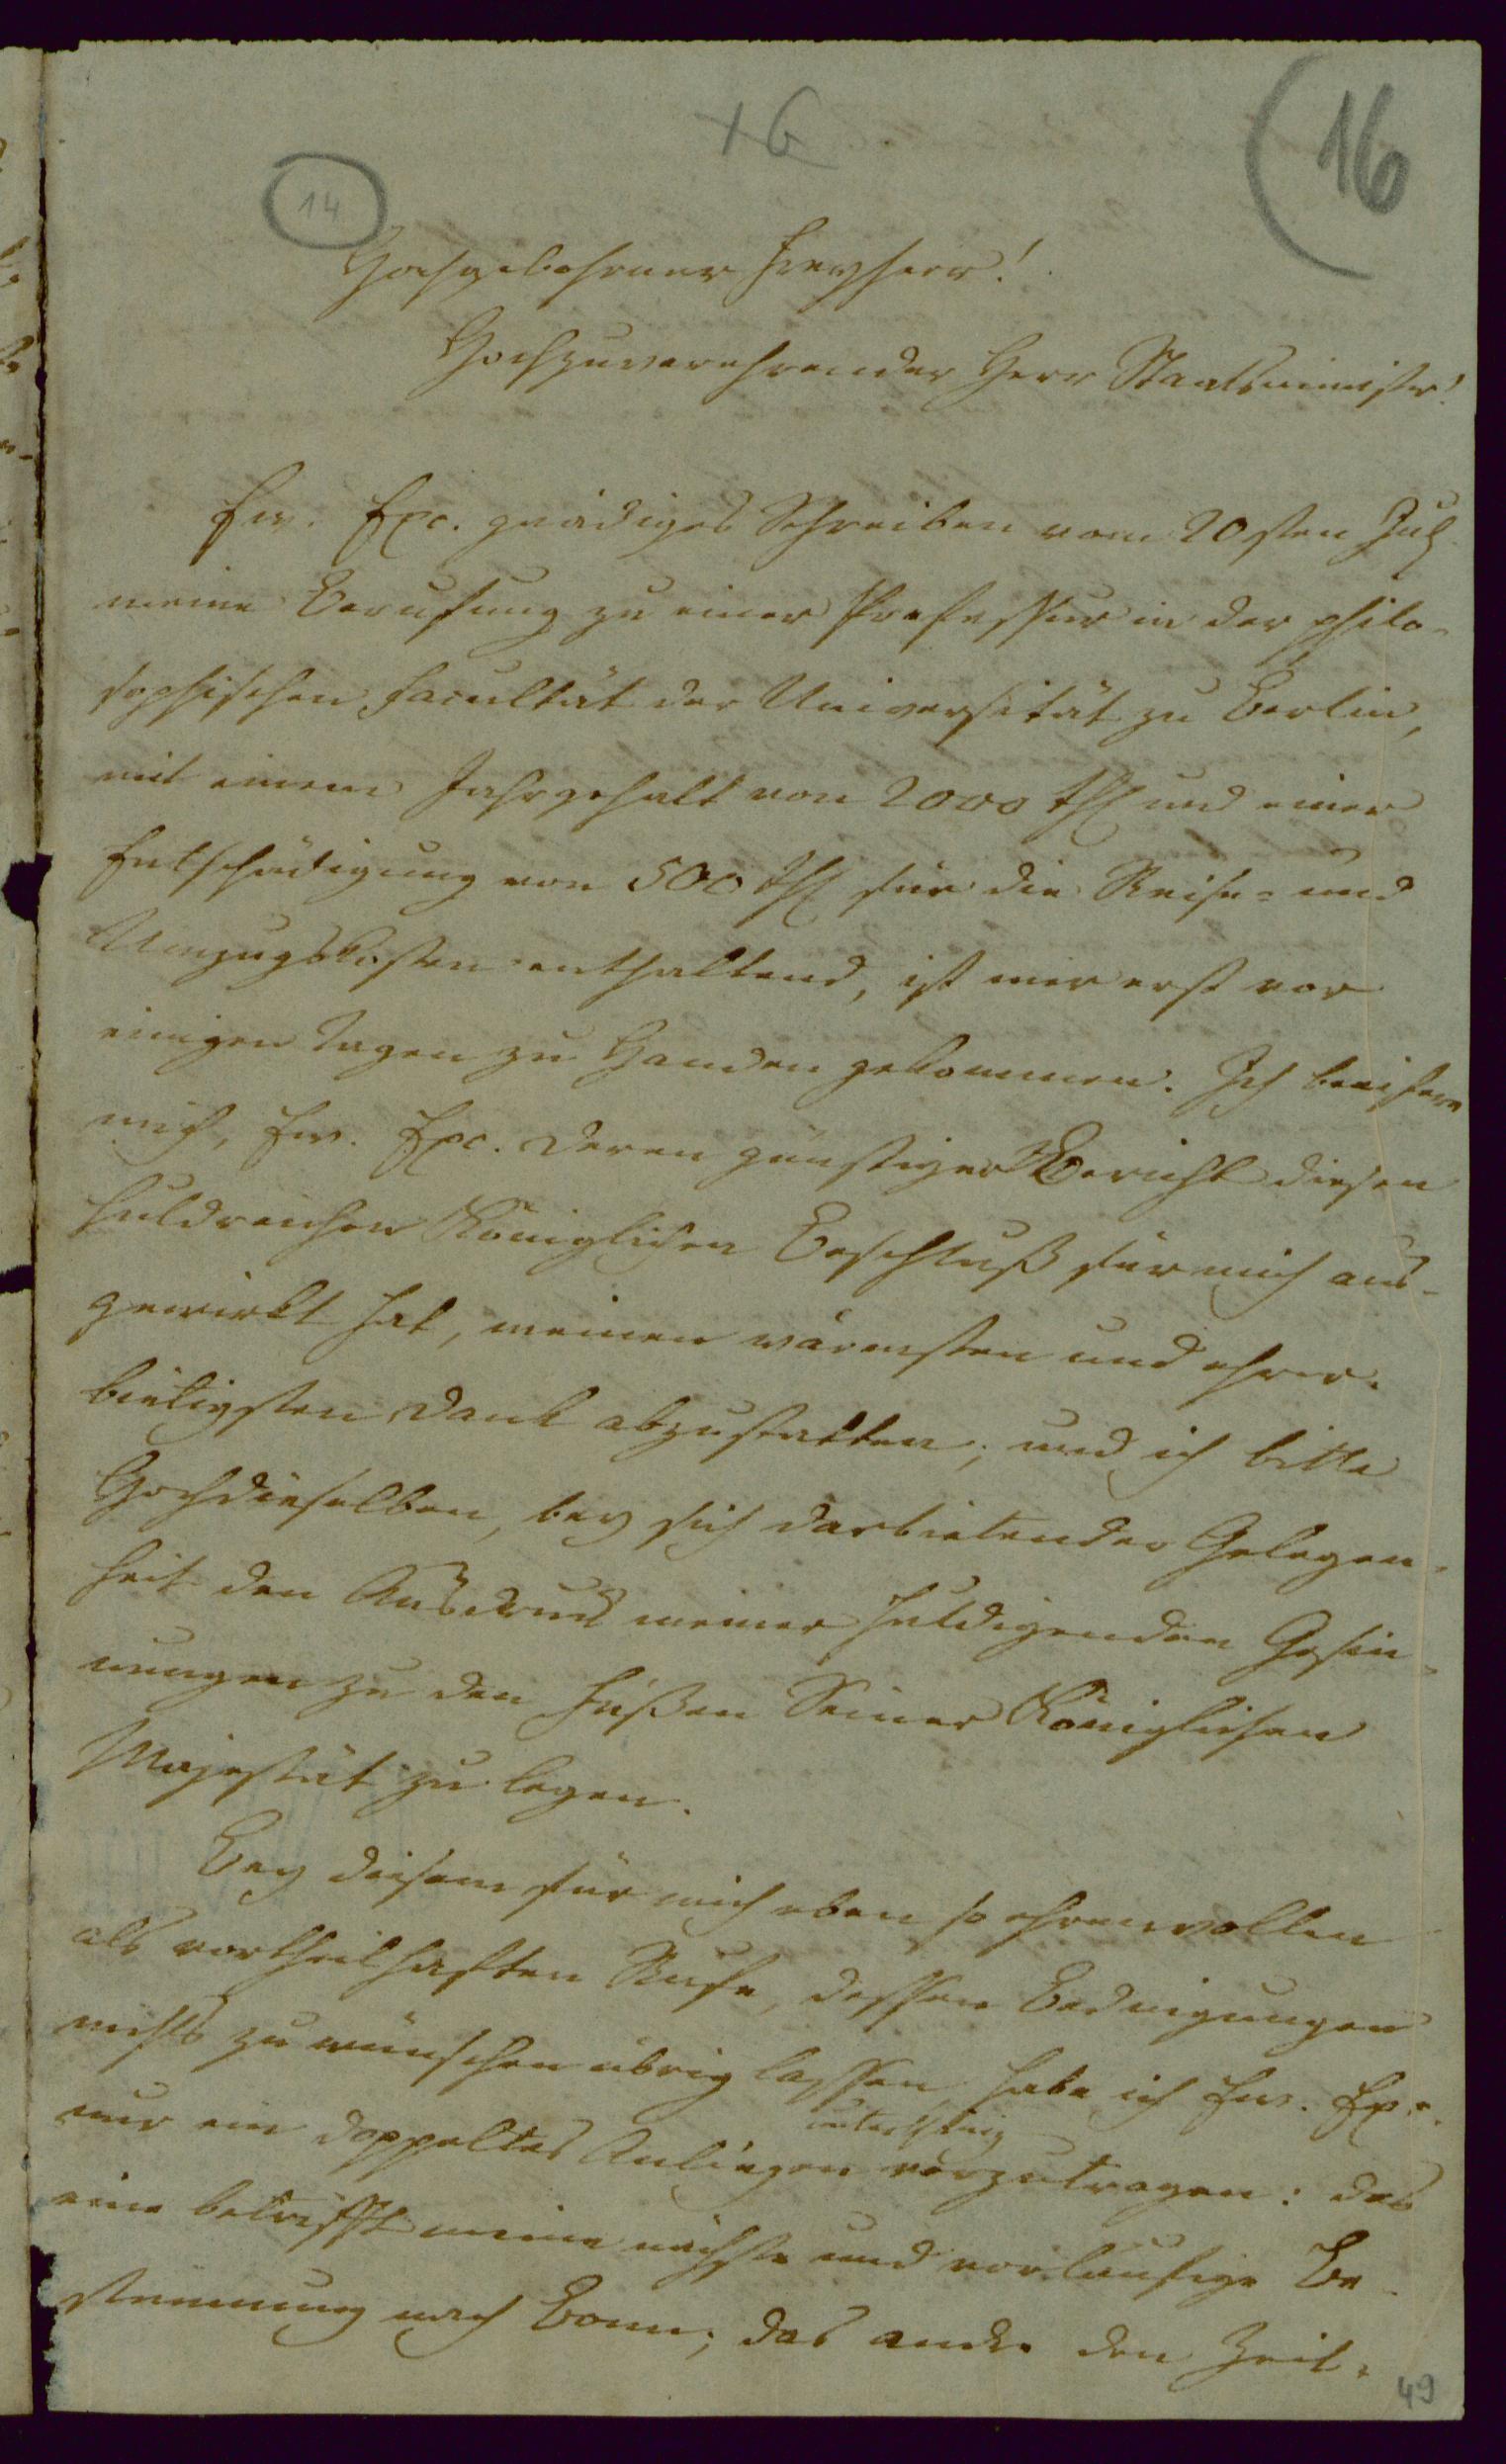 +6
16
14
Hochgebohrner Freyherr!
Hochzuverehrender Herr Staatsminister!
Ew. Exc. gnädiges Schreiben vom 20sten Jul
meine Berufung zu einer Professur in der philo-
sophischen Facultät der Universität zu Berlin,
mit einem Jahrgehalt von 2000 Thl und einer
Entschädigung von 500 Thl für die Reise- und
Umzugskosten enthaltend, ist mir erst vor
einigen Tagen zu Handen gekommen. Ich beeifere
mich, Ew. Exc. deren günstiger Bericht diesen
huldreichen Königlichen Beschluß für mich aus-
gewirkt hat, meinen wärmsten und ehrer-
bietigsten Dank abzustatten; und ich bitte
Hochdieselben, bey sich darbietender Gelegen-
heit den Ausdruck meiner huldigenden Gesin-
nungen zu den Füßen Seiner Königlichen
Majestät zu legen.
Bey diesem für mich eben so ehrenvollen
als vortheilhaften Rufe, dessen Bedingungen
nichts zu wünschen übrig lassen habe ich Ew. Exc.
unterthänig
nur ein doppeltes Anliegen vorzutragen: das
eine betrifft meine nächste und vorläufige Be-
stimmung nach Bonn; das andre den Zeit-
49